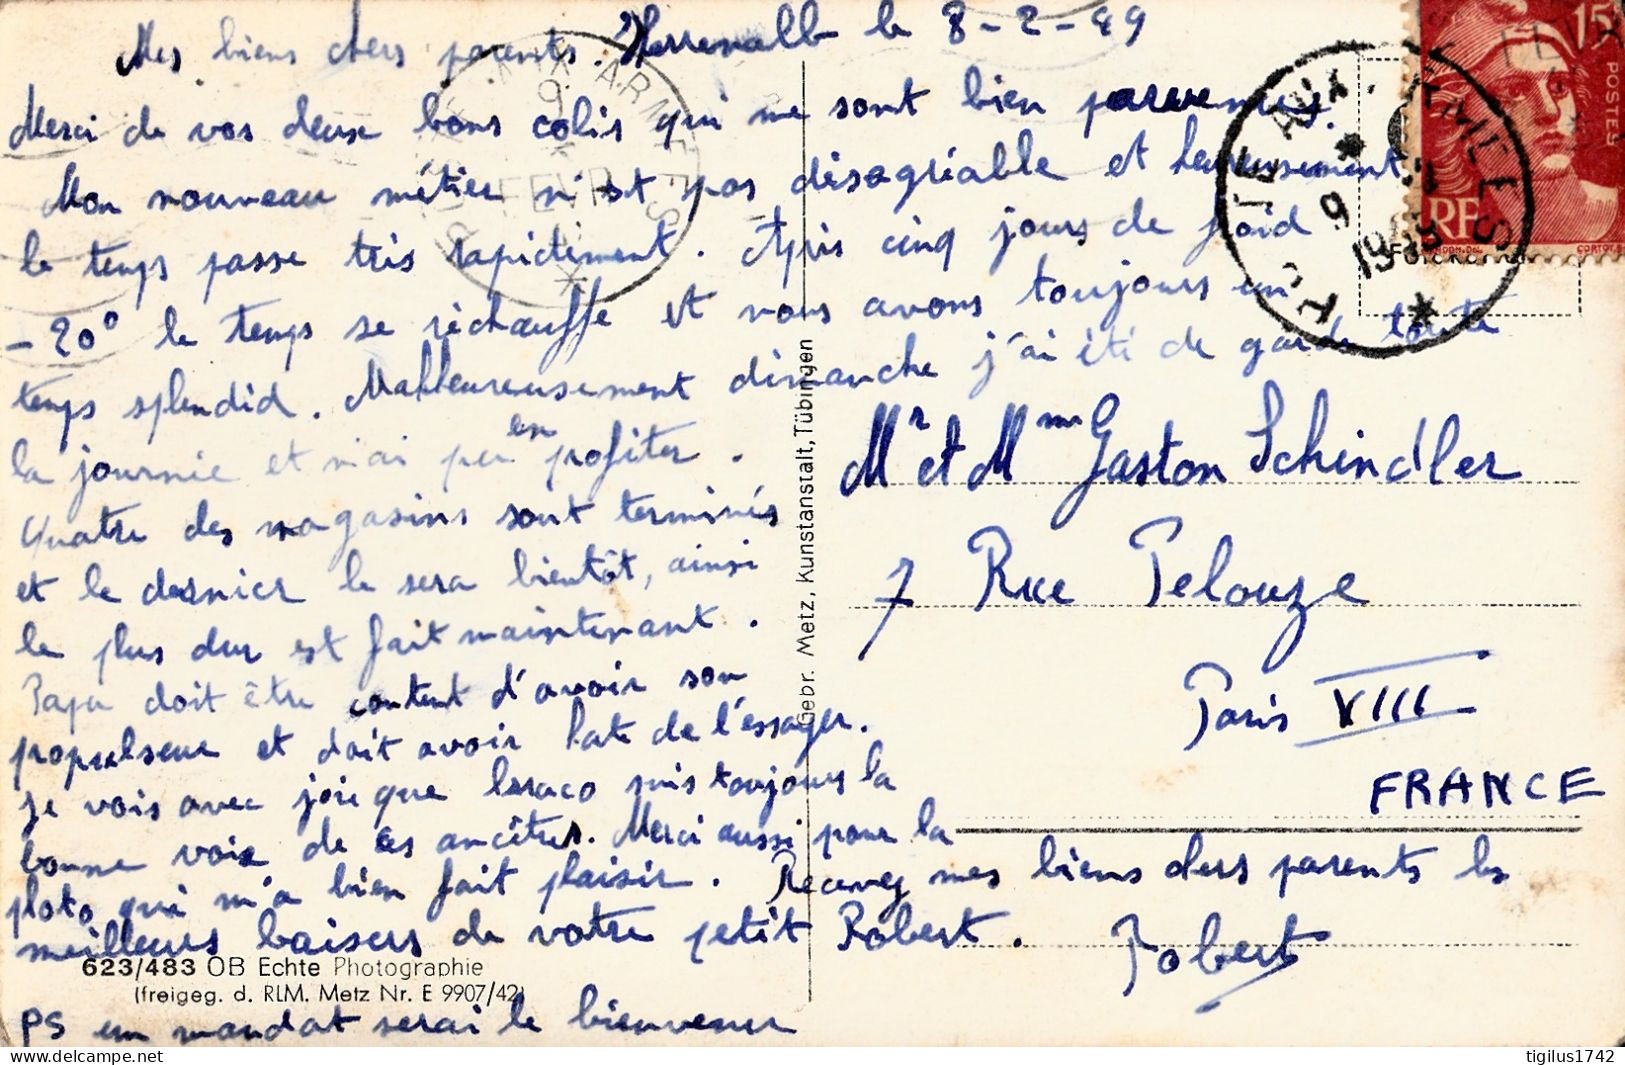 Herrenalb le 8-2-49
Mes biens chers parents.
Merci de vos deux bons colis qui me sont bien parvenus.
Mon nouveau métier n'est pas désagréable et heureusement
le temps passe très rapidement. Après cinq jours de froid
-20° le temps se réchauffe et nous avons toujours un
temps splendid. Malheureusement dimanche j'ai été de garde toute
la journée et n'ai peu en profiter.
Quatre des magasins sont terminés
et le dernier le sera bientôt, ainsi
le plus dur est fait maintenant.
Papa doit être content d'avoir son
propulseur et doit avoir hate de l'essayer.
Je vois avec joie que suis toujours la
bonne voie de ses ancêtres. Merci aussi pour la
photo qui m'a bien fait plaisir. Recevez mes biens chers parents les
meilleurs baisers de votre petit Robert.
Robert
PS un mandat serai le bienvenur
Mr et Mme Gaston Schindler
7 Rue Pelouze
Paris VIII
FRANCE
623/483 OB Echte Photographie
(freigeg. d. RLM. Metz Nr. E 9907/42)
Gebr. Metz, Kunstanstalt, Tübingen
POSTE AUX ARMEES
9
1949
POSTE AUX ARMEES
9
FEVR
15F
POSTES
RF
tigilus1742